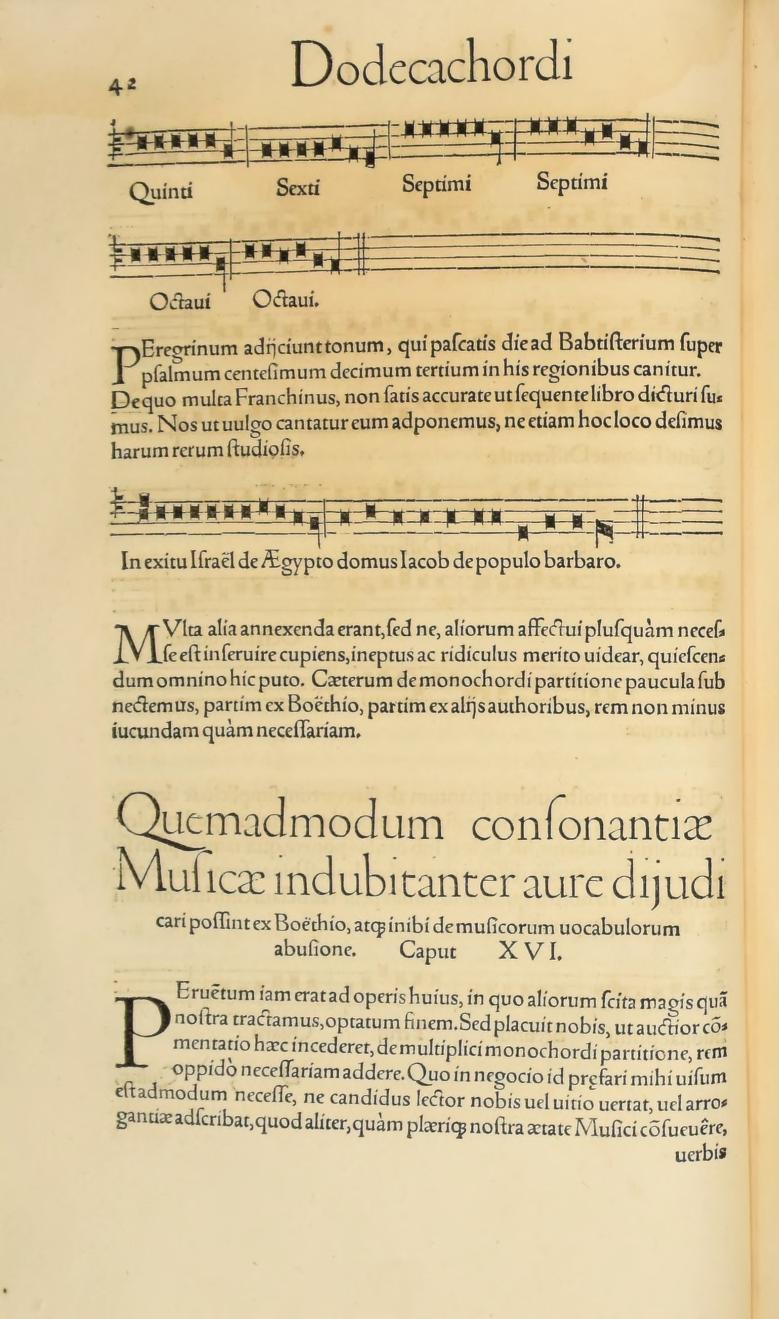 42
Dodecachordi
Quinti Sexti Septimi Septimi
Octaui Octaui.
PEregrinum adijciunt tonum, qui paſcatis die ad Babtiſterium ſuper
pſalmum centeſimum decimum tertium in his regionibus canitur.
De quo multa Franchinus, non ſatis accurate ut ſequente libro dicturi ſu⸗
mus. Nos ut uulgo cantatur eum adponemus, ne etiam hoc loco deſimus
harum rerum ſtudioſis.
In exitu Iſraël de Ægypto domus Iacob de populo barbaro.
MVlta alia annexenda erant, ſed ne, aliorum affectui pluſquàm neceſ⸗
ſe eſt inſeruire cupiens, ineptus ac ridiculus merito uidear, quieſcen⸗
dum omnino hic puto. Cæterum de monochordi partitione paucula ſub
nectemus, partim ex Boëthio, partim ex alijs authoribus, rem non minus
iucundam quàm neceſſariam.
Quemadmodum conſonantiæ
Muſicæ indubitanter aure dijudi
cari poſſint ex Boëthio, atqꝫ inibi de muſicorum uocabulorum
abuſione. Caput XVI.
PEruētum iam erat ad operis huius, in quo aliorum ſcita magis quā
noſtra tractamus, optatum finem. Sed placuit nobis, ut auctior cō⸗
mentatio hæc incederet, de multiplici monochordi partitione, rem
oppidò neceſſariam addere. Quo in negocio id prefari mihi uiſum
eſt admodum neceſſe, ne candidus lector nobis uel uitio uertat, uel arro⸗
gantiæ adſcribat, quod aliter, quàm plæriqꝫ noſtra ætate Muſici cōſueuêre,
uerbis